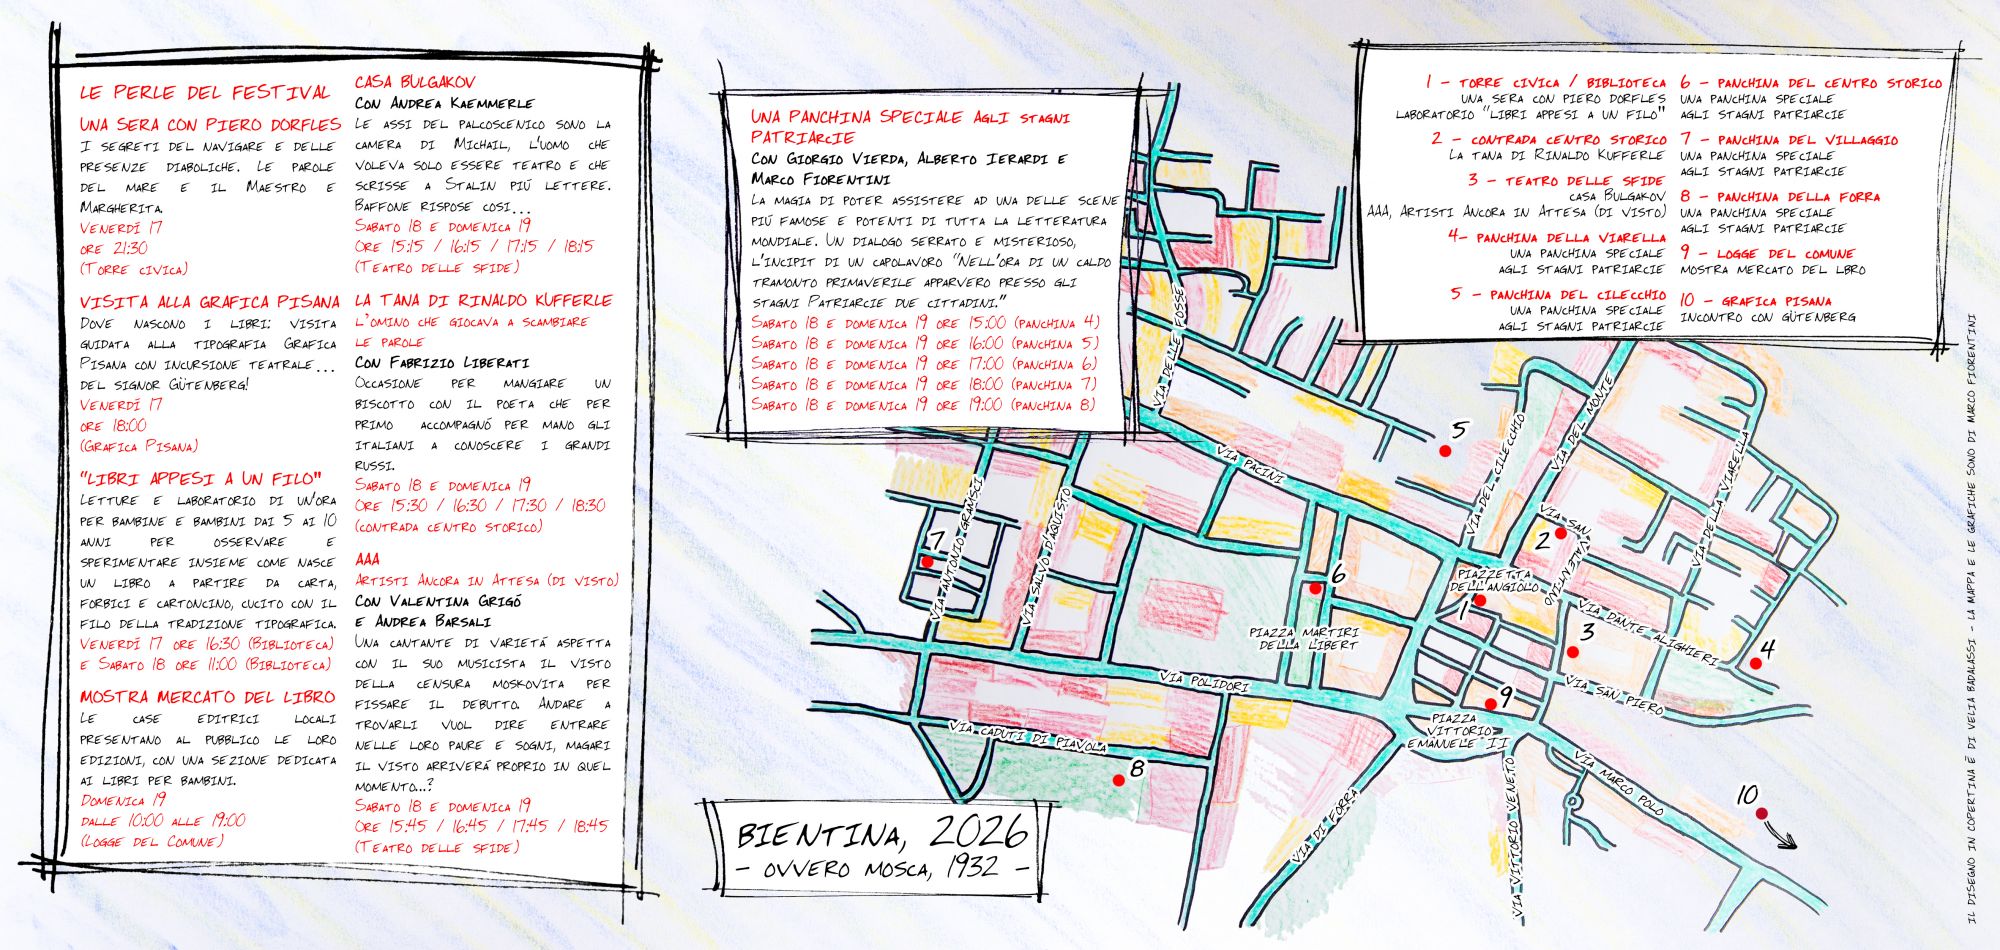 LE PERLE DEL FESTIVAL
UNA SERA CON PIERO DORFLES
I SEGRETI DEL NAVIGARE E DELLE
PRESENZE DIABOLICHE. LE PAROLE
DEL MARE E IL MAESTRO E
MARGHERITA.
VENERDÍ 17
ORE 21:30
(TORRE CIVICA)
VISITA ALLA GRAFICA PISANA
DOVE NASCONO I LIBRI: VISITA
GUIDATA ALLA TIPOGRAFIA GRAFICA
PISANA CON INCURSIONE TEATRALE...
DEL SIGNOR GÜTENBERG!
VENERDÍ 17
ORE 18:00
(GRAFICA PISANA)
"LIBRI APPESI A UN FILO"
LETTURE E LABORATORIO DI UN'ORA
PER BAMBINE E BAMBINI DAI 5 AI 10
ANNI PER OSSERVARE E
SPERIMENTARE INSIEME COME NASCE
UN LIBRO A PARTIRE DA CARTA,
FORBICI E CARTONCINO, CUCITO CON IL
FILO DELLA TRADIZIONE TIPOGRAFICA.
VENERDÍ 17 ORE 16:30 (BIBLIOTECA)
E SABATO 18 ORE 11:00 (BIBLIOTECA)
MOSTRA MERCATO DEL LIBRO
LE CASE EDITRICI LOCALI
PRESENTANO AL PUBBLICO LE LORO
EDIZIONI, CON UNA SEZIONE DEDICATA
AI LIBRI PER BAMBINI.
DOMENICA 19
DALLE 10:00 ALLE 19:00
(LOGGE DEL COMUNE)
CASA BULGAKOV
CON ANDREA KAEMMERLE
LE ASSI DEL PALCOSCENICO SONO LA
CAMERA DI MICHAIL, L'UOMO CHE
VOLEVA SOLO ESSERE TEATRO E CHE
SCRISSE A STALIN PIÚ LETTERE.
BAFFONE RISPOSE COSI...
SABATO 18 E DOMENICA 19
ORE 15:15 / 16:15 / 17:15 / 18:15
(TEATRO DELLE SFIDE)
LA TANA DI RINALDO KUFFERLE
L'OMINO CHE GIOCAVA A SCAMBIARE
LE PAROLE
CON FABRIZIO LIBERATI
OCCASIONE PER MANGIARE UN
BISCOTTO CON IL POETA CHE PER
PRIMO ACCOMPAGNÓ PER MANO GLI
ITALIANI A CONOSCERE I GRANDI
RUSSI.
SABATO 18 E DOMENICA 19
ORE 15:30 / 16:30 / 17:30 / 18:30
(CONTRADA CENTRO STORICO)
AAA
ARTISTI ANCORA IN ATTESA (DI VISTO)
CON VALENTINA GRIGÓ
E ANDREA BARSALI
UNA CANTANTE DI VARIETÁ ASPETTA
CON IL SUO MUSICISTA IL VISTO
DELLA CENSURA MOSKOVITA PER
FISSARE IL DEBUTTO. ANDARE A
TROVARLI VUOL DIRE ENTRARE
NELLE LORO PAURE E SOGNI, MAGARI
IL VISTO ARRIVERÁ PROPRIO IN QUEL
MOMENTO...?
SABATO 18 E DOMENICA 19
ORE 15:45 / 16:45 / 17:45 / 18:45
(TEATRO DELLE SFIDE)
UNA PANCHINA SPECIALE AGLI STAGNI
PATRIARCIE
CON GIORGIO VIERDA, ALBERTO IERARDI E
MARCO FIORENTINI
LA MAGIA DI POTER ASSISTERE AD UNA DELLE SCENE
PIÚ FAMOSE E POTENTI DI TUTTA LA LETTERATURA
MONDIALE. UN DIALOGO SERRATO E MISTERIOSO,
L'INCIPIT DI UN CAPOLAVORO "NELL'ORA DI UN CALDO
TRAMONTO PRIMAVERILE APPARVERO PRESSO GLI
STAGNI PATRIARCIE DUE CITTADINI."
SABATO 18 E DOMENICA 19 ORE 15:00 (PANCHINA 4)
SABATO 18 E DOMENICA 19 ORE 16:00 (PANCHINA 5)
SABATO 18 E DOMENICA 19 ORE 17:00 (PANCHINA 6)
SABATO 18 E DOMENICA 19 ORE 18:00 (PANCHINA 7)
SABATO 18 E DOMENICA 19 ORE 19:00 (PANCHINA 8)
1 - TORRE CIVICA / BIBLIOTECA
UNA SERA CON PIERO DORFLES
LABORATORIO "LIBRI APPESI A UN FILO"
2 - CONTRADA CENTRO STORICO
LA TANA DI RINALDO KUFFERLE
3 - TEATRO DELLE SFIDE
CASA BULGAKOV
AAA, ARTISTI ANCORA IN ATTESA (DI VISTO)
4- PANCHINA DELLA VIARELLA
UNA PANCHINA SPECIALE
AGLI STAGNI PATRIARCIE
5 - PANCHINA DEL CILECCHIO
UNA PANCHINA SPECIALE
AGLI STAGNI PATRIARCIE
6 - PANCHINA DEL CENTRO STORICO
UNA PANCHINA SPECIALE
AGLI STAGNI PATRIARCIE
7 - PANCHINA DEL VILLAGGIO
UNA PANCHINA SPECIALE
AGLI STAGNI PATRIARCIE
8 - PANCHINA DELLA FORRA
UNA PANCHINA SPECIALE
AGLI STAGNI PATRIARCIE
9 - LOGGE DEL COMUNE
MOSTRA MERCATO DEL LBRO
10 - GRAFICA PISANA
INCONTRO CON GÜTENBERG
VIA DELLE FOSSE
VIA PACINI
5
VIA DEL CILECCHIO
VIA DEL MONTE
VIA DELLA VIARELLA
VIA SAN VALENTINO
2
7
VIA ANTONIO GRAMSCI
VIA SALVO D'AQUISTO
6
PIAZZETTA
DELL'ANGIOLO
1
PIAZZA MARTIRI
DELLA LIBERT
3
VIA DANTE ALIGHIERI
4
VIA POLIDORI
VIA SAN PIERO
9
PIAZZA
VITTORIO
EMANUELE II
VIA CADUTI DI PIAVOLA
8
VIA MARCO POLO
VIA VITTORIO VENETO
VIA DI FORRA
10
BIENTINA, 2026
- OVVERO MOSCA, 1932 -
IL DISEGNO IN COPERTINA É DI VELIA BADALASSI - LA MAPPA E LE GRAFICHE SONO DI MARCO FIORENTINI